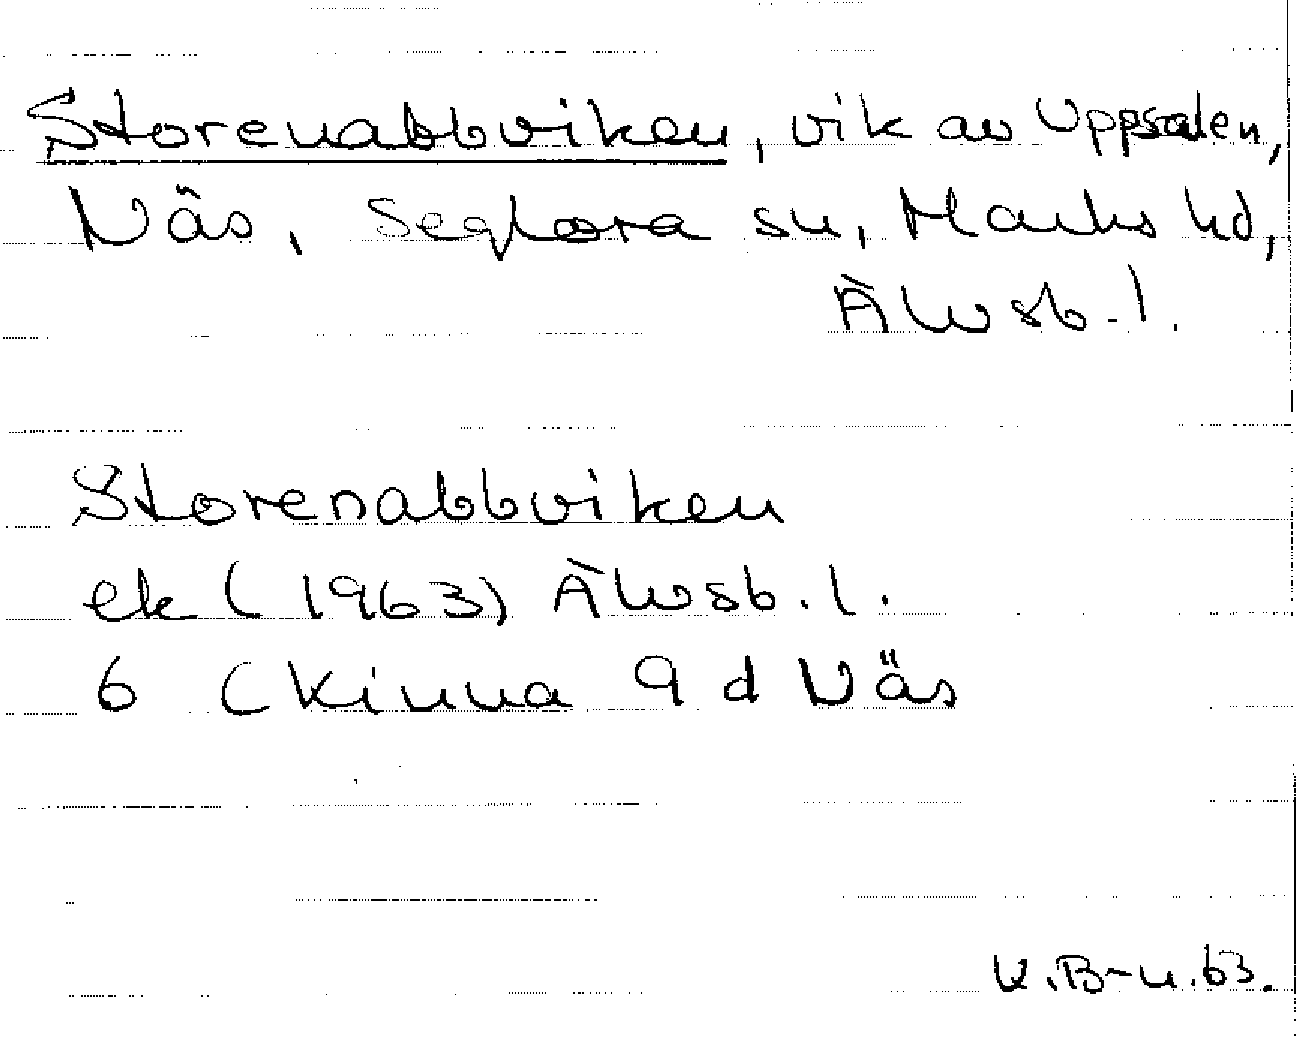 Storenabbviken, vik av Uppsalen,
Näs, Seglora sn, Marks hd,
Älvsb. l.
Storenabbviken
ek (1963) Älvsb. l.
6 C Kinna 9 d Näs
K.B-n.63.